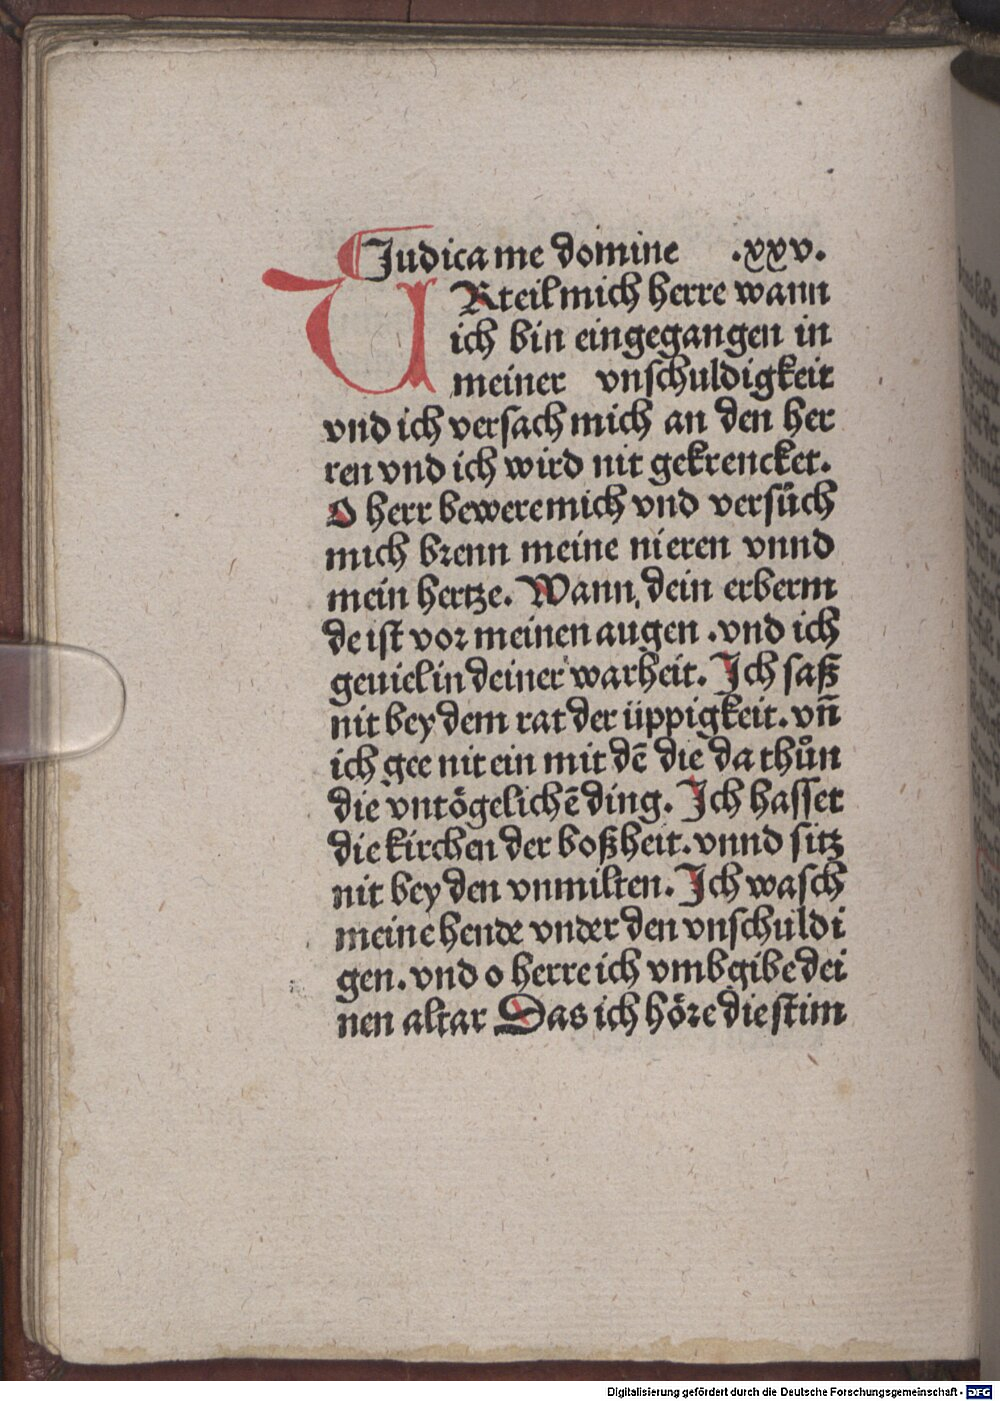 Judica me domine .xxv.
URteil mich herre wann
ich bin eingegangen in
meiner vnschuldigkeit
vnd ich versach mich an den her
ren vnd ich wird nit gekrencket.
O herr bewere mich vnd versůch
mich brenn meine nieren vnnd
mein hertze. Wann dein erberm
de ist vor meinen augen .vnd ich
geuiel in deiner warheit. Jch saß
nit bey dem rat der üppigkeit. vn̄
ich gee nit ein mit dē die da thůn
die vntögelichē ding. Jch hasset
die kirchen der boßheit. vnnd sitz
nit bey den vnmilten. Jch wasch
meine hende vnder den vnschuldi
gen. vnd o herre ich vmbgibe dei
nen altar Das ich höre die stim
Digitalisierung gefördert durch die Deutsche Forschungsgemeinschaft - DFG